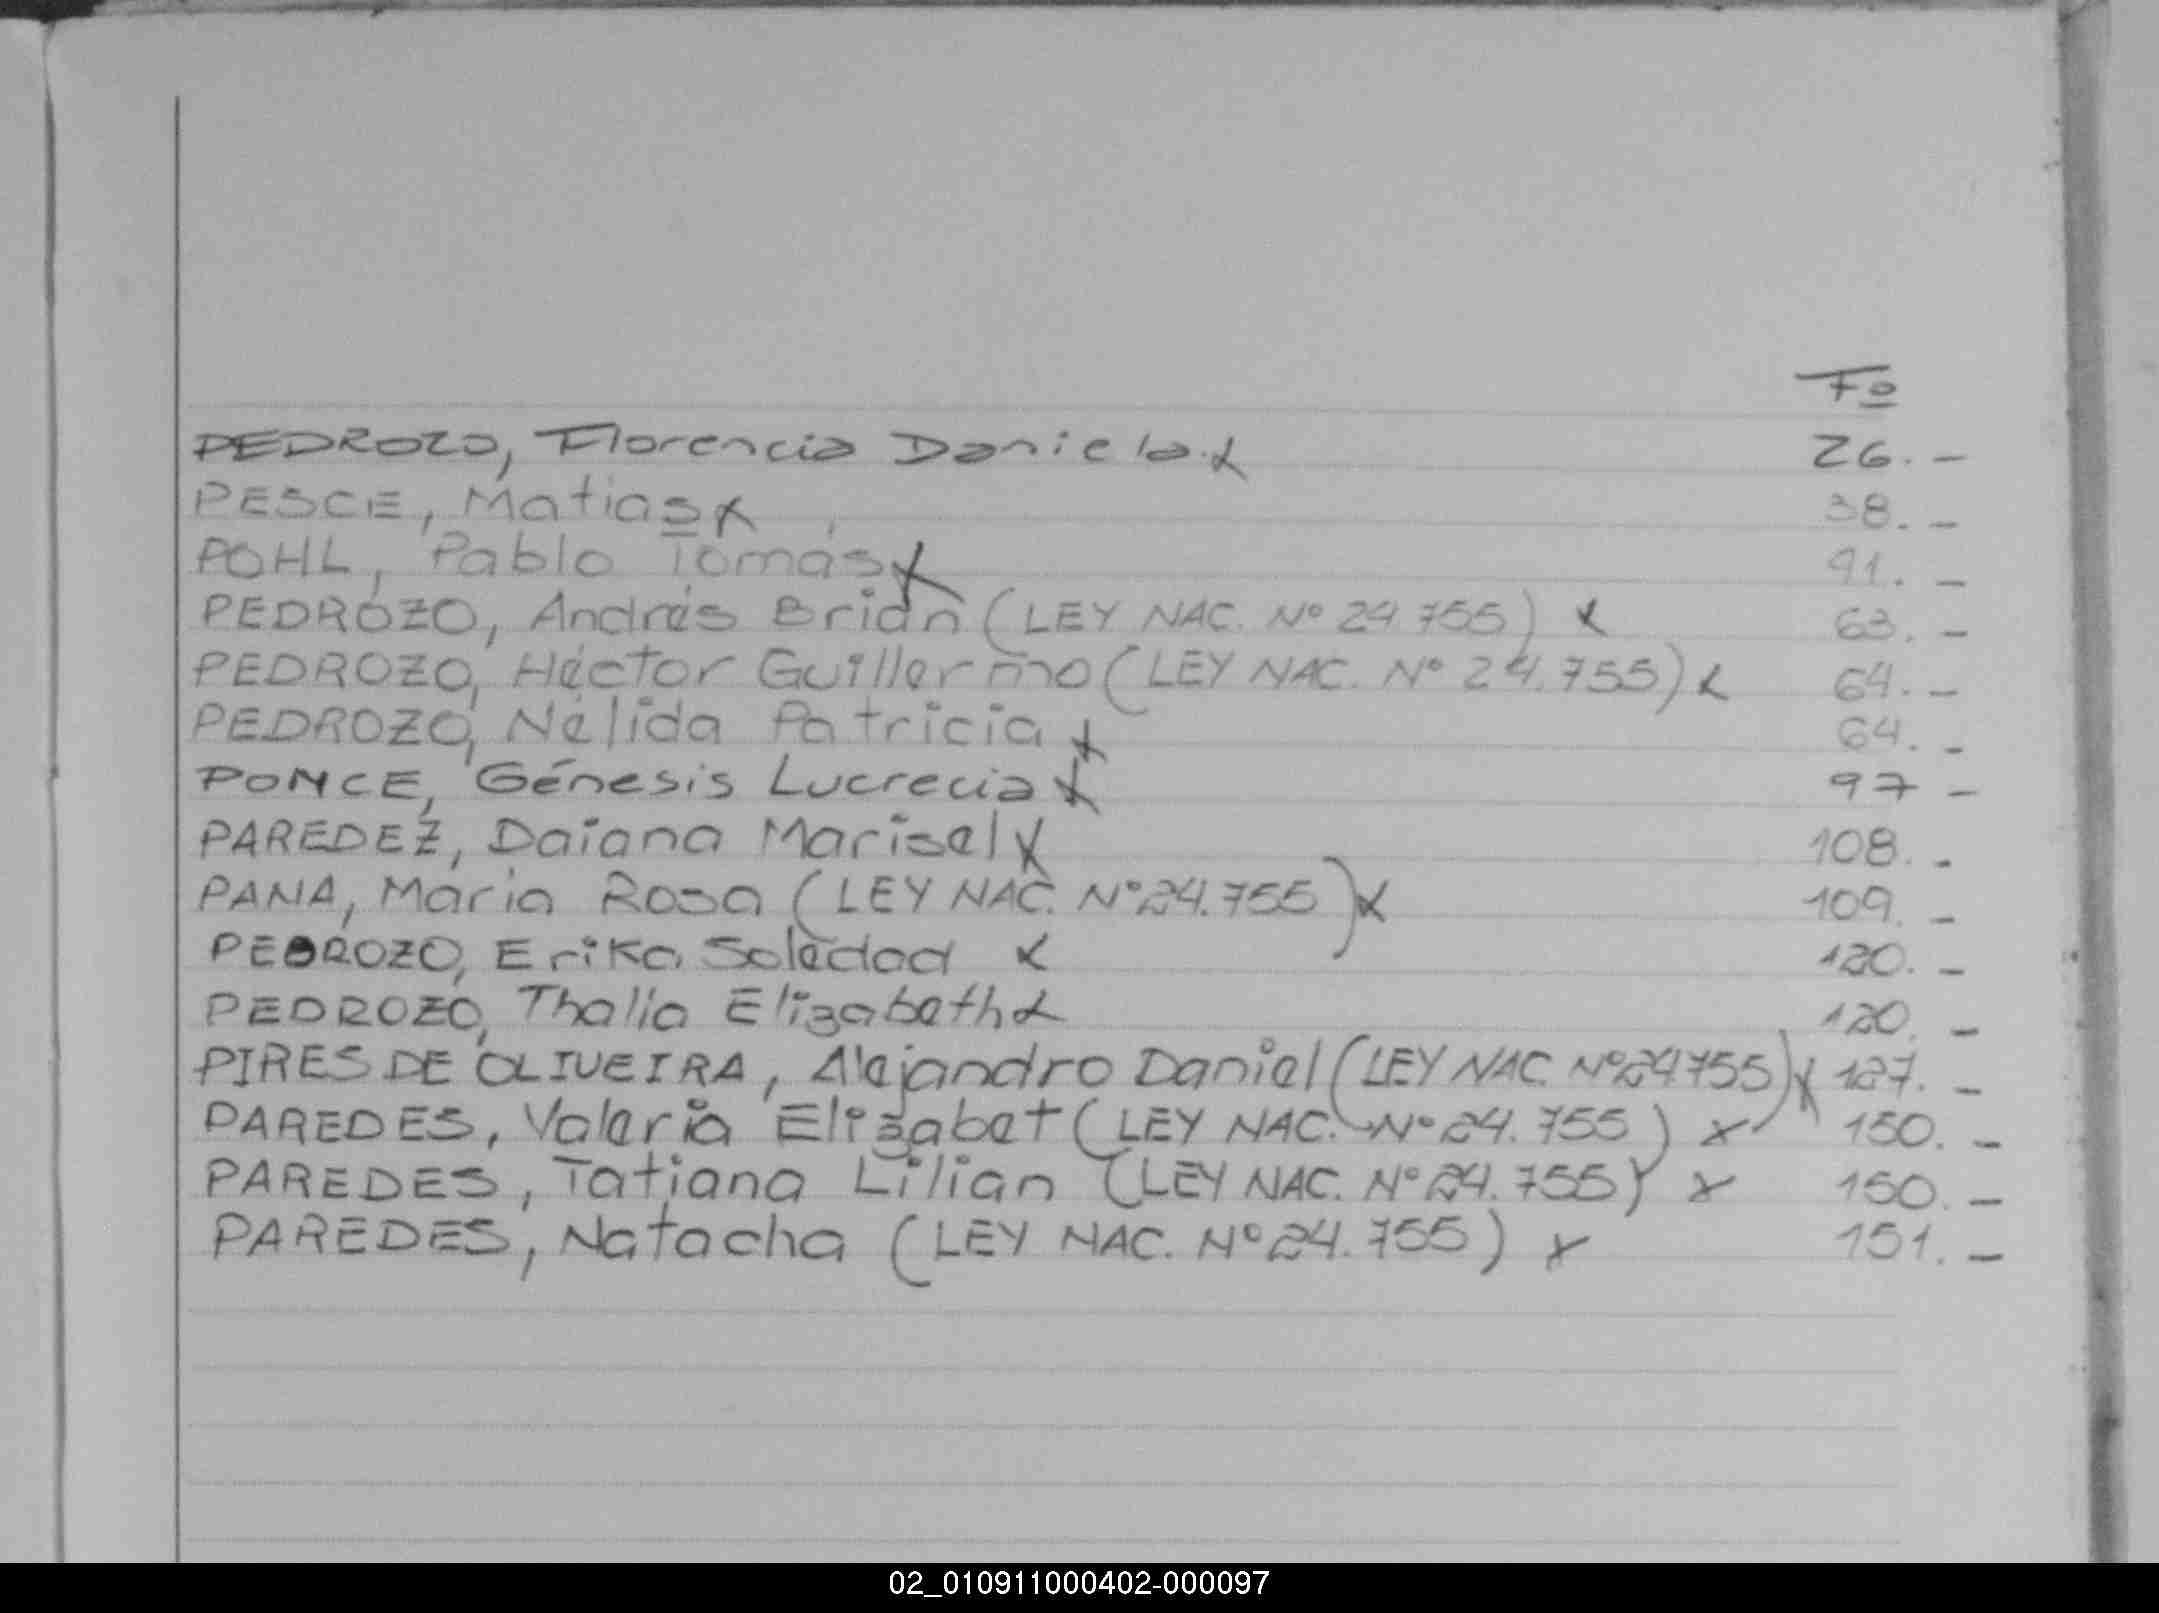 Fº
PEDROZO, Florencia Daniela.x 26. -
PESCE, Matias x 38. -
POHL, Pablo Tomás x 91. -
PEDROZO, Andrés Brian (LEY NAC. Nº 24 755) x 63. -
PEDROZO, Héctor Guillermo (LEY NAC. Nº 24.755) x 64. -
PEDROZO, Nélida Patricia x 64. -
PONCE, Génesis Lucrecia x 97 -
PAREDEZ, Daiana Marisel x 108. -
PANA, Maria Rosa (LEY NAC. Nº 24.755) x 109. -
PEDROZO, Erika Soledad x 120. -
PEDROZO, Thalia Elizabeth x 120. -
PIRES DE OLIVEIRA, Alejandro Daniel (LEY NAC Nº 24755) x 127. -
PAREDES, Valeria Elizabet (LEY NAC. Nº 24.755) x 150. -
PAREDES, Tatiana Lilian (LEY NAC. Nº 24.755) x 150. -
PAREDES, Natacha (LEY NAC. Nº 24.755) x 151. -
02_010911000402-000097